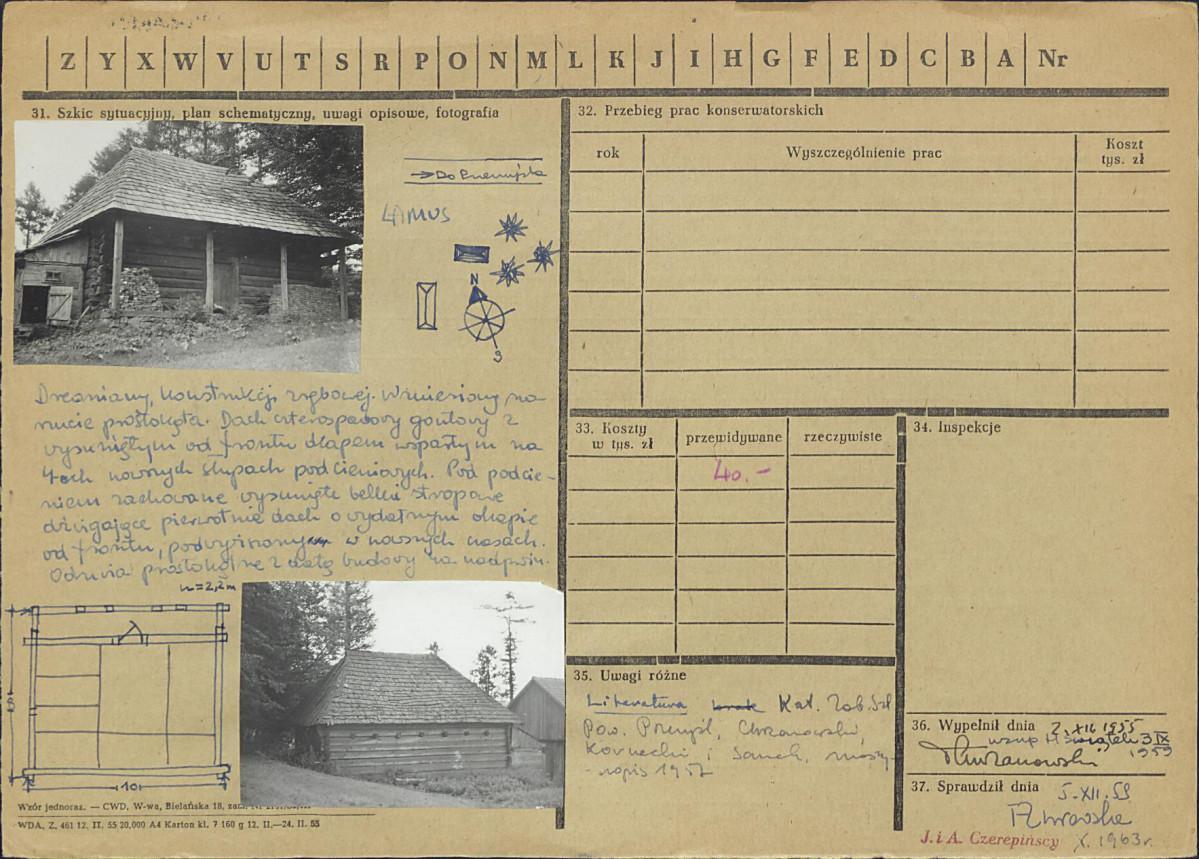 Z Y X W V U T S R P O N M L K J I H G F E D C B A Nr
31. Szkic sytuacyjny, plan schematyczny, uwagi opisowe, fotografia
→ Do Przemyśla
LAMUS
N
S
Drewniany, konstrukcji zrębowej. Wzniesiony na
rzucie prostokąta. Dach czterospadowy gontowy z
wysuniętym od frontu okapem wspartym na
4ech nowszych słupach podcieniowych. Pod podcie-
niem zachowane wysunięte belki stropowe
dźwigające pierwotnie dach o wydatnym okapie
od frontu, podwyższony w nowszych czasach.
Odrzwia prostokątne z datą budowy na nadprożu.
h=2,2m
10
Wzór jednoraz. — CWD, W-wa, Bielańska 18, zam.
WDA, Z. 461 12. II. 55 20,000 A4 Karton kl. 7 160 g 12. II.—24. II. 55
32. Przebieg prac konserwatorskich
rok
Wyszczególnienie prac
Koszt
tys. zł
33. Koszty
w tys. zł
przewidywane
rzeczywiste
40.-
34. Inspekcje
35. Uwagi różne
Literatura brak Kat. Zab. Szt
Pow. Przemyśl, Chrzanowski,
Kornecki i Samek, maszy-
nopis 1957
36. Wypełnił dnia 2. XII 1955
uzup H Świątek 3 IX
1959
Chrzanowski
37. Sprawdził dnia 5. XII. 59
J. i A. Czerepińscy X. 1963 r.